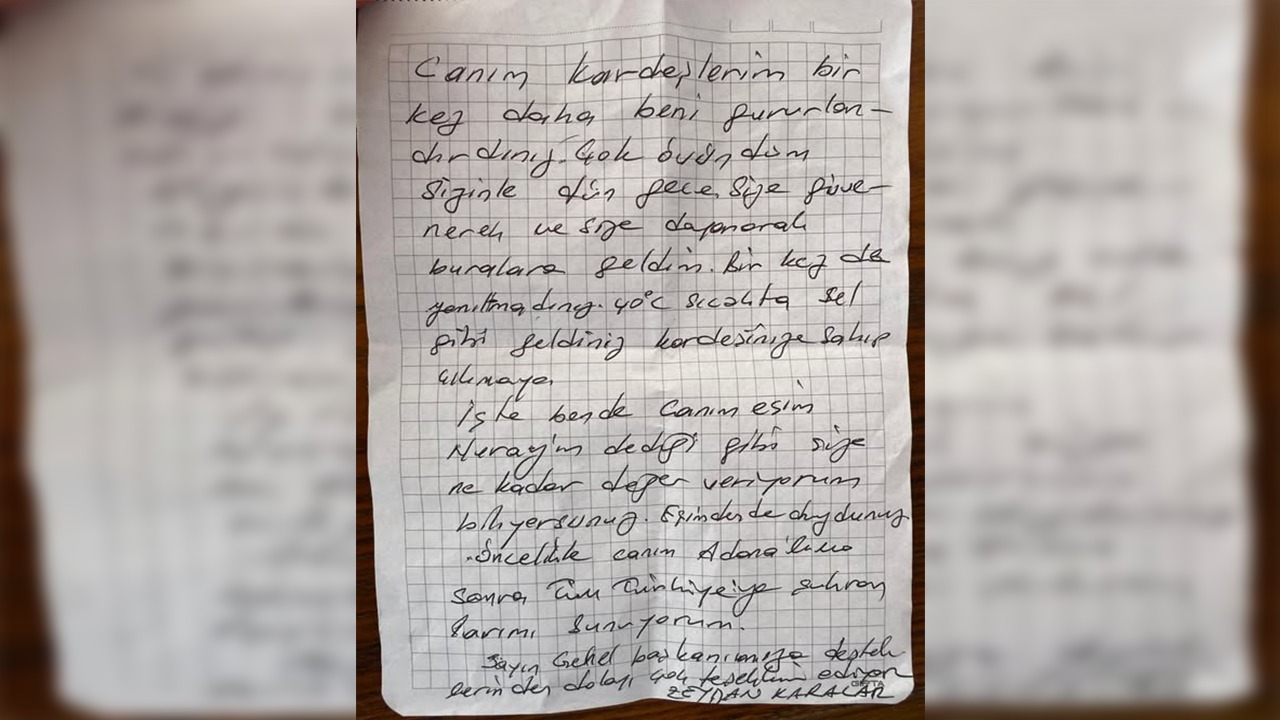 Canım kardeşlerim bir
kez daha beni gururlan-
dırdınız. Çok övündüm
Sizinle dün gece. Size güve-
nerek ve size dayanarak
buralara geldim. Bir kez de
yanıltmadınız. 40°C sıcakta sel
gibi geldiniz kardeşinize sahip
çıkmaya.
İşte bende Canım eşim
Nuray'ın dediği gibi size
ne kadar değer veriyorum
biliyersunuz. Eşimden de duydunuz
Öncelikle canım Adana'lıma
sonra Tüm Türkiye'ye şükran
larımı sunuyorum.
Sayın Genel başkanımıza destek
lerinden dolayı çok teşekkür ediyor
ZEYDAN KARALAR